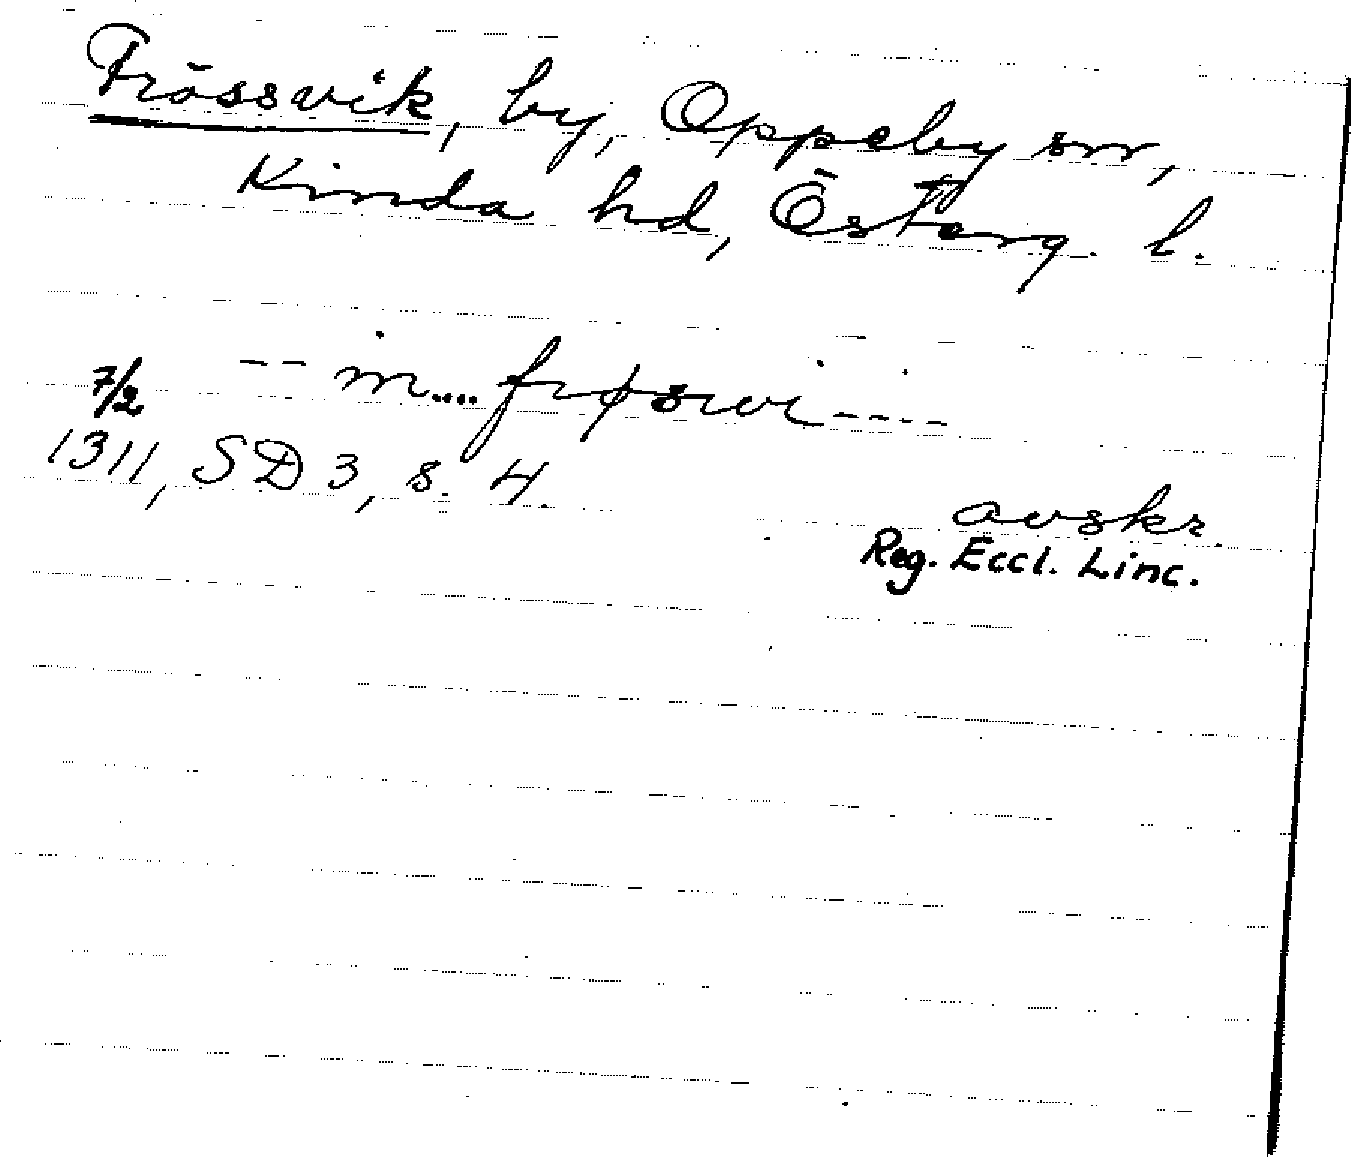 Frössvik, by, Oppeby sn,
Kinda hd, Österg. l.
-- m.... frøswi ----
7/2
1311, SD 3, s. 4.
avskr.
Reg. Eccl. Linc.